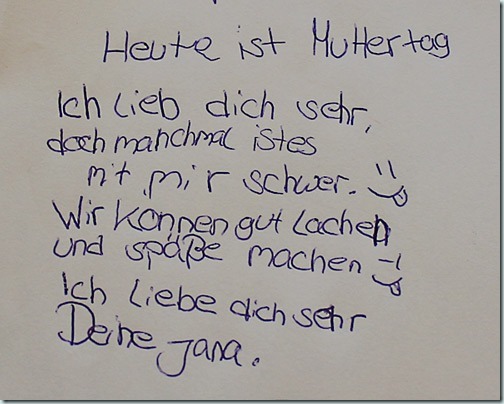 Heute ist Muttertag
Ich lieb dich sehr,
doch manchmal ist es
mit mir schwer.
Wir können gut lachen
und späße machen
Ich liebe dich sehr
Deine Jana.